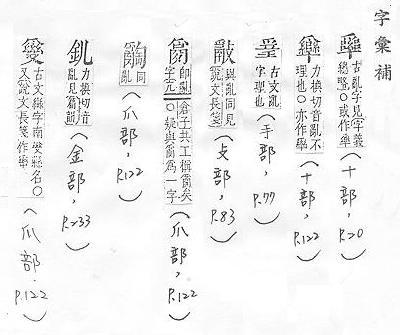 字彙補
古亂字見字義總畧○或作 （十部，P.20）
力換切音亂不理也○亦作 （十部，P.122）
古文亂字理也 （手部，P.77）
與亂同見說文長箋 （攴部，P.83）
𤔔 即亂字亢倉子共工稱𤔔矣○疑與𤔔為一字 （爪部，P.122）
同亂 （爪部，P.122）
釠 力換切音亂見篇韻 （金部，P.233）
古文䜌字南䜌縣名○又說文長箋作 （爪部，P.122）